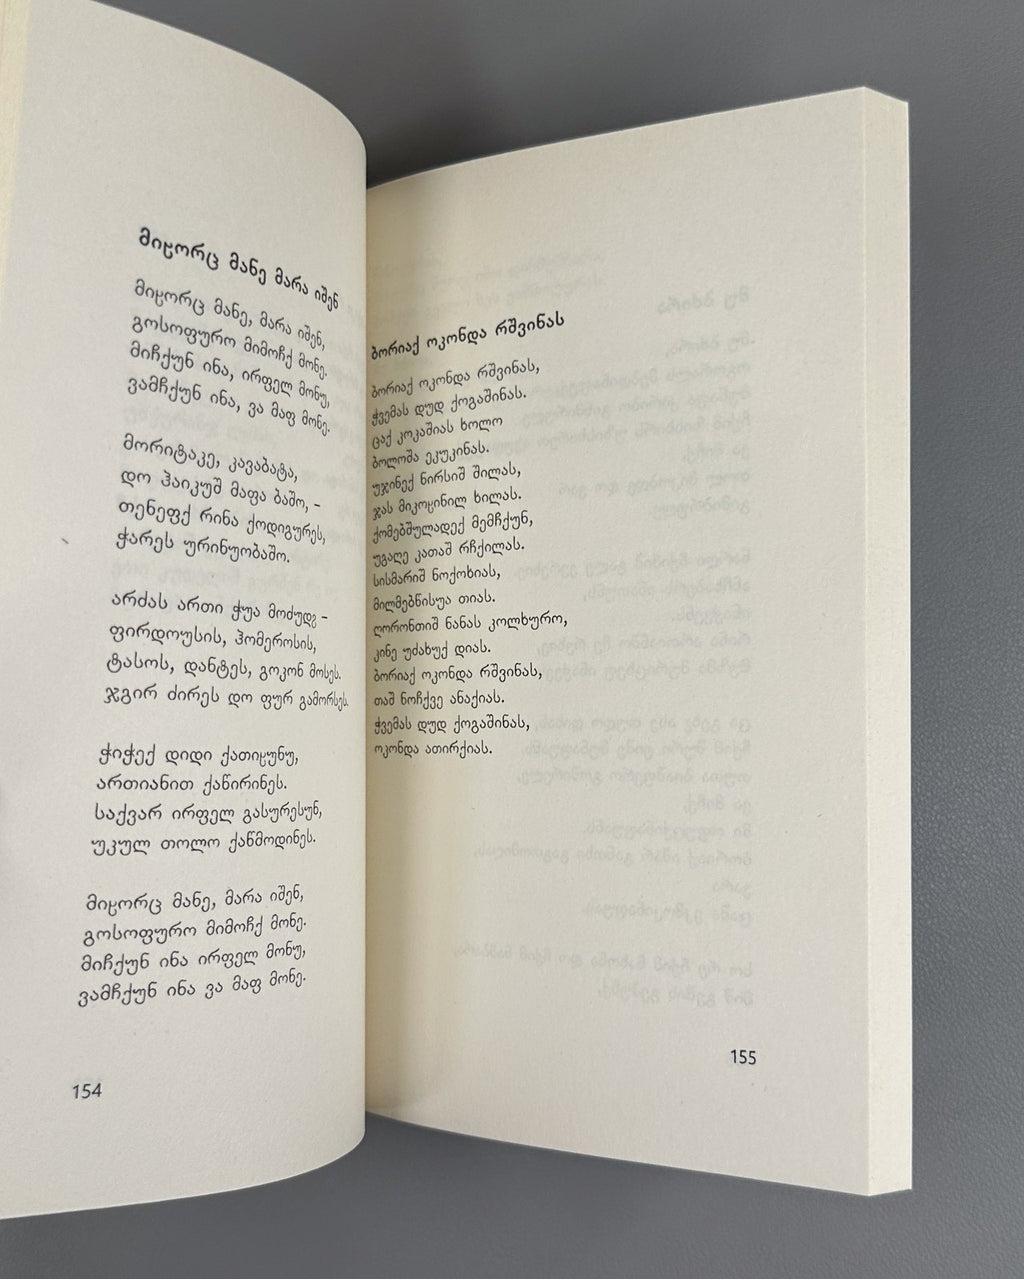 მიჸორც მანე მარა იშენ
მიჸორც მანე, მარა იშენ,
გოსოფურო მიმოჩქ მონე.
მიჩქუნ ინა, ირფელ მონუ,
ვამჩქუნ ინა, ვა მაფ მონე.
მორიტაკე, კავაბატა,
დო ჰაიკუშ მაფა ბაშო, –
თენეფქ რინა ქოდიგურეს,
ჭარეს ურინუობაშო.
არძას ართი ჭუა მოძუდგ –
ფირდოუსის, ჰომეროსის,
ტასოს, დანტეს, გოკონ მოსეს.
ჯგირ ძირეს დო ფურ გამორსეს.
ჭიჭექ დიდი ქათიჸუნუ,
ართიანით ქაწირინეს.
საქვარ ირფელ გასურესუნ,
უკულ თოლო ქაწმოდინეს.
მიჸორც მანე, მარა იშენ,
გოსოფურო მიმოჩქ მონე.
მიჩქუნ ინა ირფელ მონუ,
ვამჩქუნ ინა ვა მაფ მონე.
154
ბორიაქ ოკონდა რშვინას
ბორიაქ ოკონდა რშვინას,
ჭვემას დუდ ქოგაშინას.
ცაქ კოკაშიას ხოლო
ბოლოშა ეკუკინას.
უჯინექ ნირსიშ შილას,
ჯას მიკოჸინილ ხილას.
ქომებშულადექ მემჩქუნ,
უგაღე კათაშ რჩქილას.
სისმარიშ ნოქოხიას,
მილმებწისუა თიას.
ღორონთიშ ნანას კოლხურო,
კინე უძახუქ დიას.
ბორიაქ ოკონდა რშვინას,
თაშ ნოჩქვე ანაქიას.
ჭვემას დუდ ქოგაშინას,
ოკონდა ათირქიას.
155